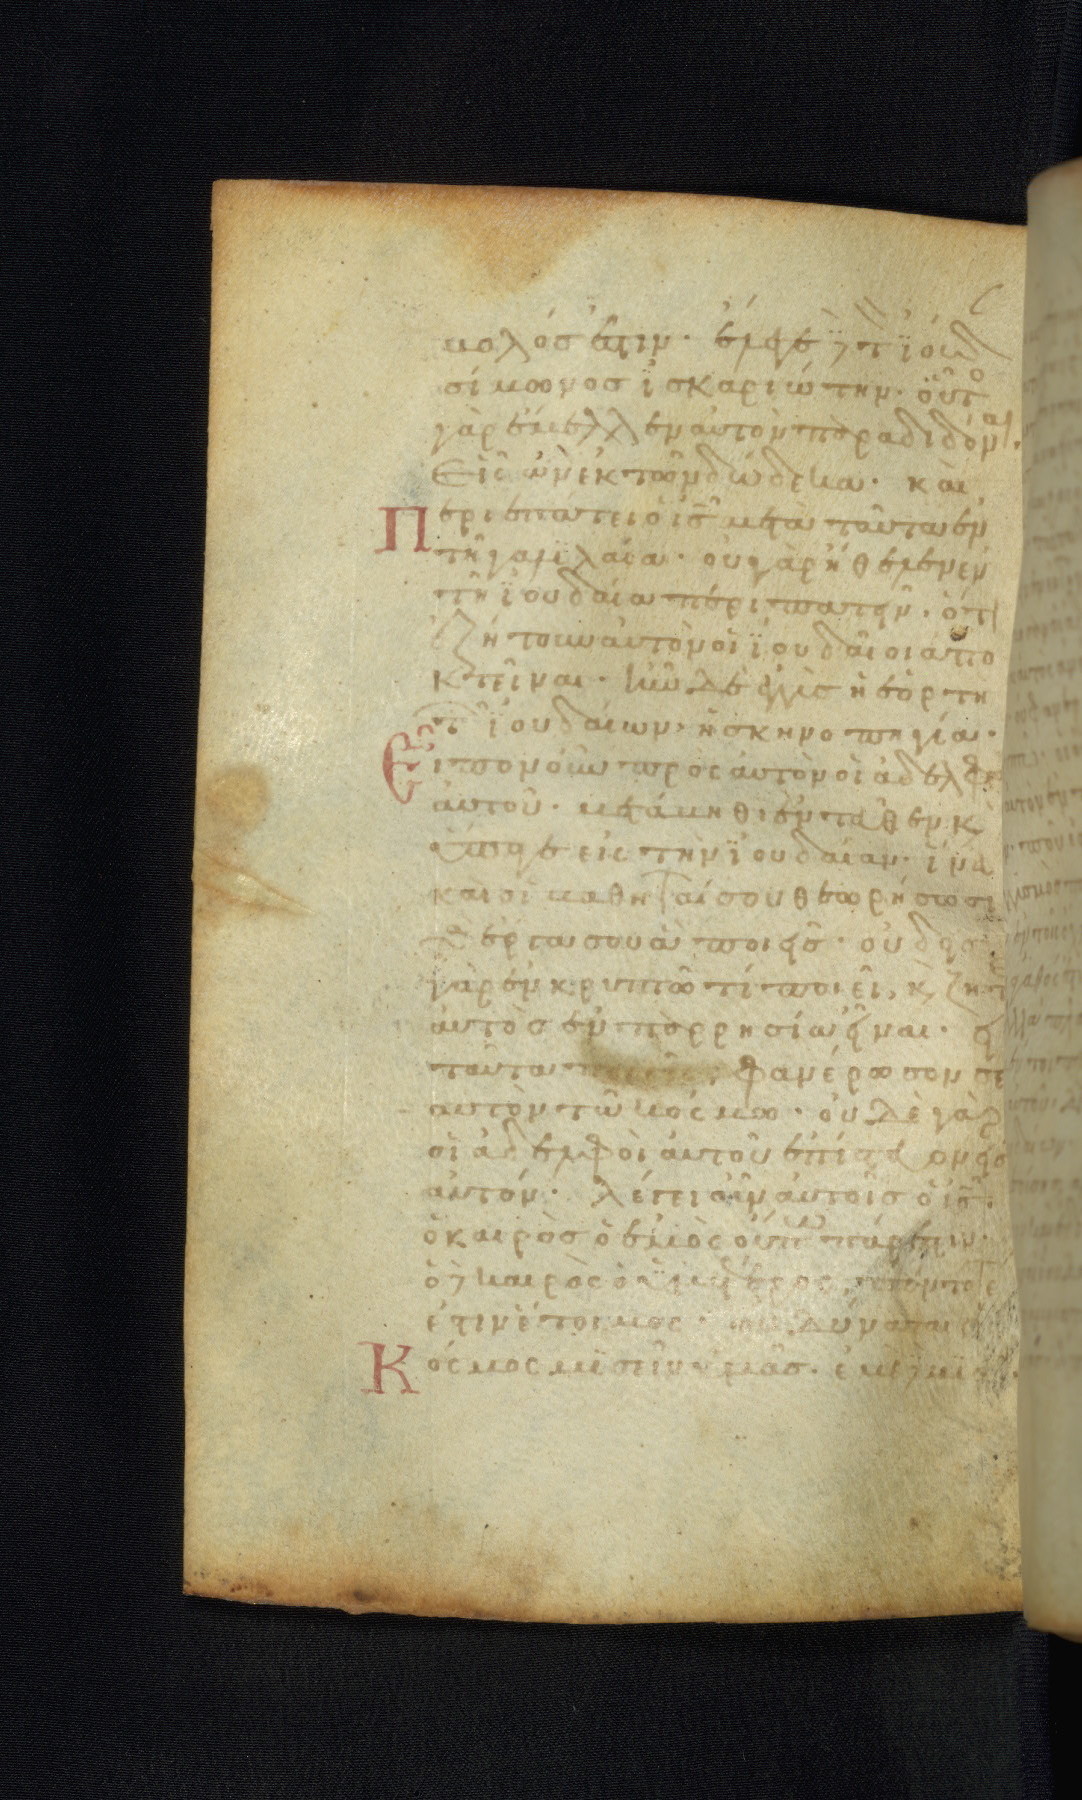 βολός ἐστιν. ἔλεγε δὲ τὸν ϊούδ
σίμωνοσ ϊσκαριώτην. οὗτο
γὰρ ἔμελλεν αὐτὸν παραδιδόναι.
Εἷς ὢν ἐκ τῶν δώδεκα. καὶ
Περιεπάτει ὁ ις μετὰ ταῦτα ἐν
τῆ γαλιλαία. οὐ γὰρ ἤθελεν ἐν
τῆ ϊουδαία περιπατεῖν. ὅτι
ἐζήτουν αὐτὸν οἱ ϊουδαῖοι ἀπο
κτεῖναι. ἦν δὲ ἐγγὺσ ἡ ἑορτὴ
τῶν ϊουδαίων. ἡ σκηνοπηγία.
Εἶπον οὖν πρὸς αὐτὸν οἱ ἀδελφοὶ
αὐτοῦ. μετάβηθι ἐντεῦθεν κ
ὕπαγε εἰς τὴν ϊουδαίαν. ἵνα
καὶ οἱ μαθηταί σου θεωρήσωσι
τὰ ἔργα σου ἃ ποιεῖσ. οὐδεὶσ
γὰρ ἐν κρυπτῶ τί ποιεῖ, κ ζητεῖ
αὐτὸσ ἐν παρρησία εἶναι. εἰ
ταῦτα ποιεῖς, φανέρωσον σε
αυτὸν τῶ κόσμω. οὐδὲ γὰρ
οἱ ἀδελφοὶ αὐτοῦ ἐπίστευον εἰσ
αὐτόν. λέγει οὖν αὐτοῖσ ὁ ις.
ὁ καιρὸσ ὁ ἐμὸς οὔπω πάρεστιν.
ὁ δὲ καιρὸς ὁ ϋμέτερος πάντοτε
ἐστιν ἕτοιμος. οὐ δύναται ὁ
Κόσμος μισεῖν ὑμᾶσ. ἐμὲ δὲ μισεῖ.